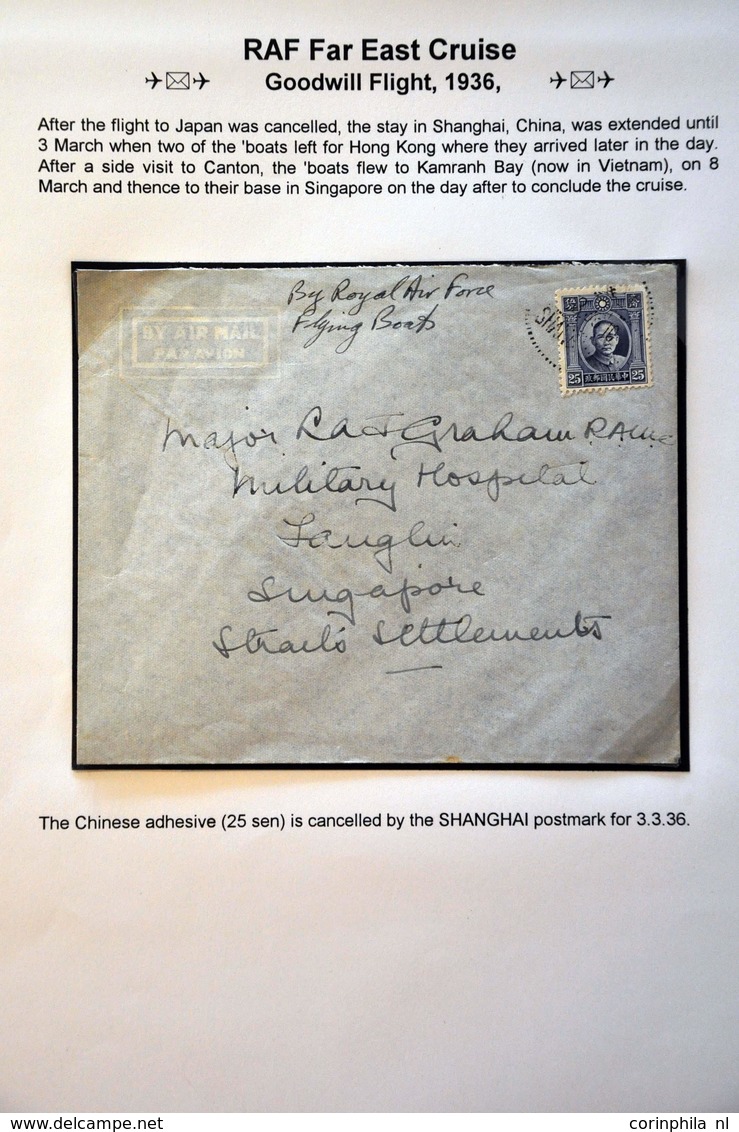 RAF Far East Cruise
Goodwill Flight, 1936,
After the flight to Japan was cancelled, the stay in Shanghai, China, was extended until
3 March when two of the 'boats left for Hong Kong where they arrived later in the day.
After a side visit to Canton, the 'boats flew to Kamranh Bay (now in Vietnam), on 8
March and thence to their base in Singapore on the day after to conclude the cruise.
By Royal Air Force
Flying Boats
BY AIR MAIL
PAR AVION
SHA
25 中華民國郵政 25
Major Graham R.A.M.C
Military Hospital
Tanglin
Singapore
Straits Settlements
The Chinese adhesive (25 sen) is cancelled by the SHANGHAI postmark for 3.3.36.
delcampe.net
corinphila nl